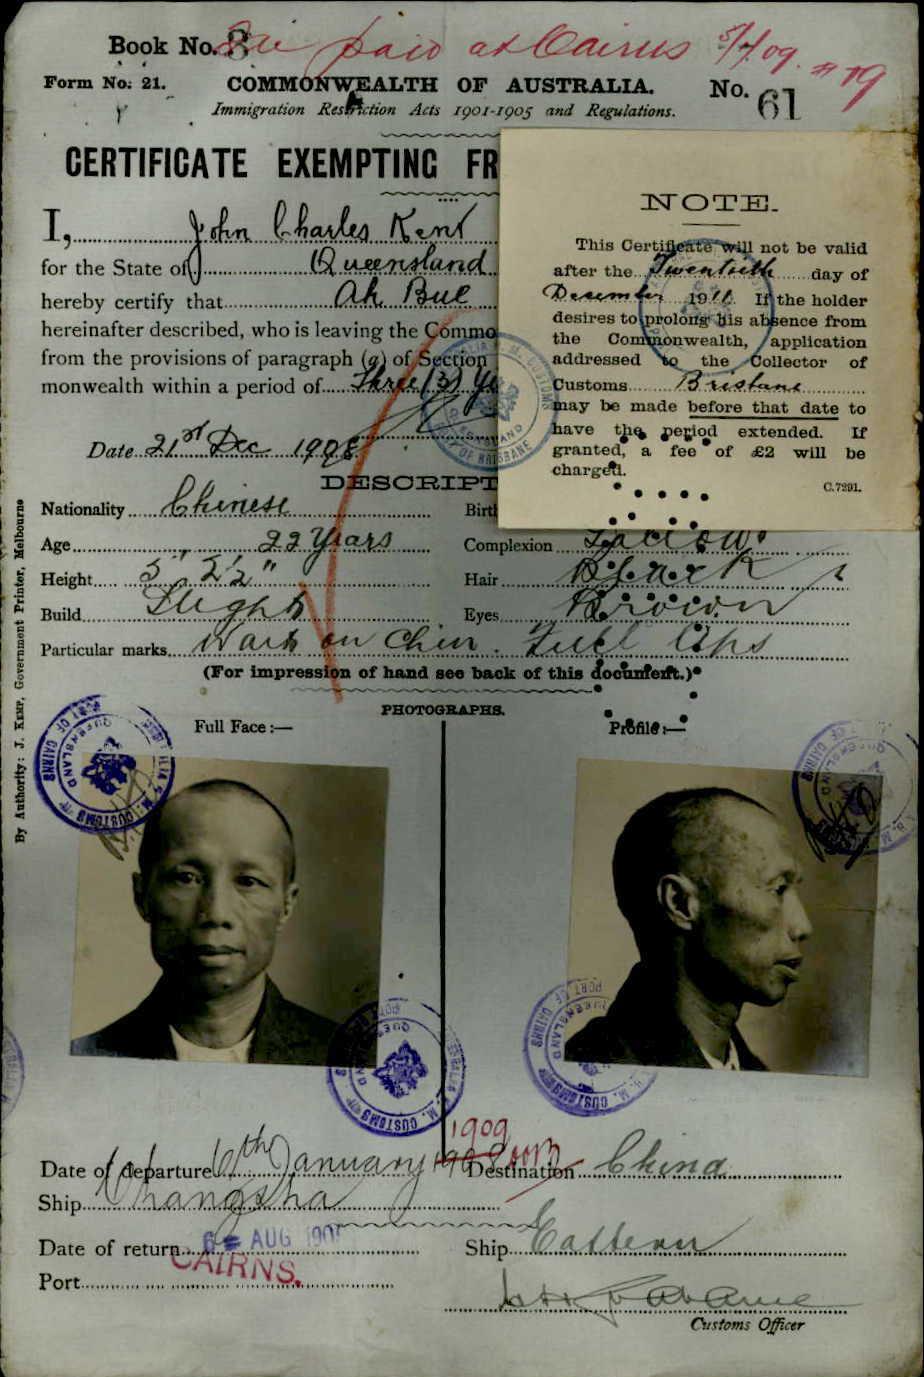 Book No. 8
paid at Cairns 5/1/09. # 19
Form No. 21.
COMMONWEALTH OF AUSTRALIA.
No. 61
Immigration Restriction Acts 1901-1905 and Regulations.
CERTIFICATE EXEMPTING FR
I, John Charles Kent
for the State of Queensland
hereby certify that Ah Bue
hereinafter described, who is leaving the Commo
from the provisions of paragraph (a) of Section
monwealth within a period of Three (3) Ye
Date 21st Dec 1908
NOTE.
This Certificate will not be valid
after the Twentieth day of
December 1911. If the holder
desires to prolong his absence from
the Commonwealth, application
addressed to the Collector of
Customs Brisbane
may be made before that date to
have the period extended. If
granted, a fee of £2 will be
charged.
C.7291.
DESCRIPT
Nationality Chinese
Birt
Age 22 Years
Complexion Sallow
Height 5' 2½"
Hair Black
Build Slight
Eyes Brown
Particular marks Mark on Chin. Full lips
(For impression of hand see back of this document.)
PHOTOGRAPHS.
Full Face :—
Profile :—
By Authority: J. KEMP, Government Printer, Melbourne
1909
Date of departure 6th January 1908
Destination China
Ship Changsha
Date of return 6 AUG 190
Ship Eastern
CAIRNS.
Port
Customs Officer